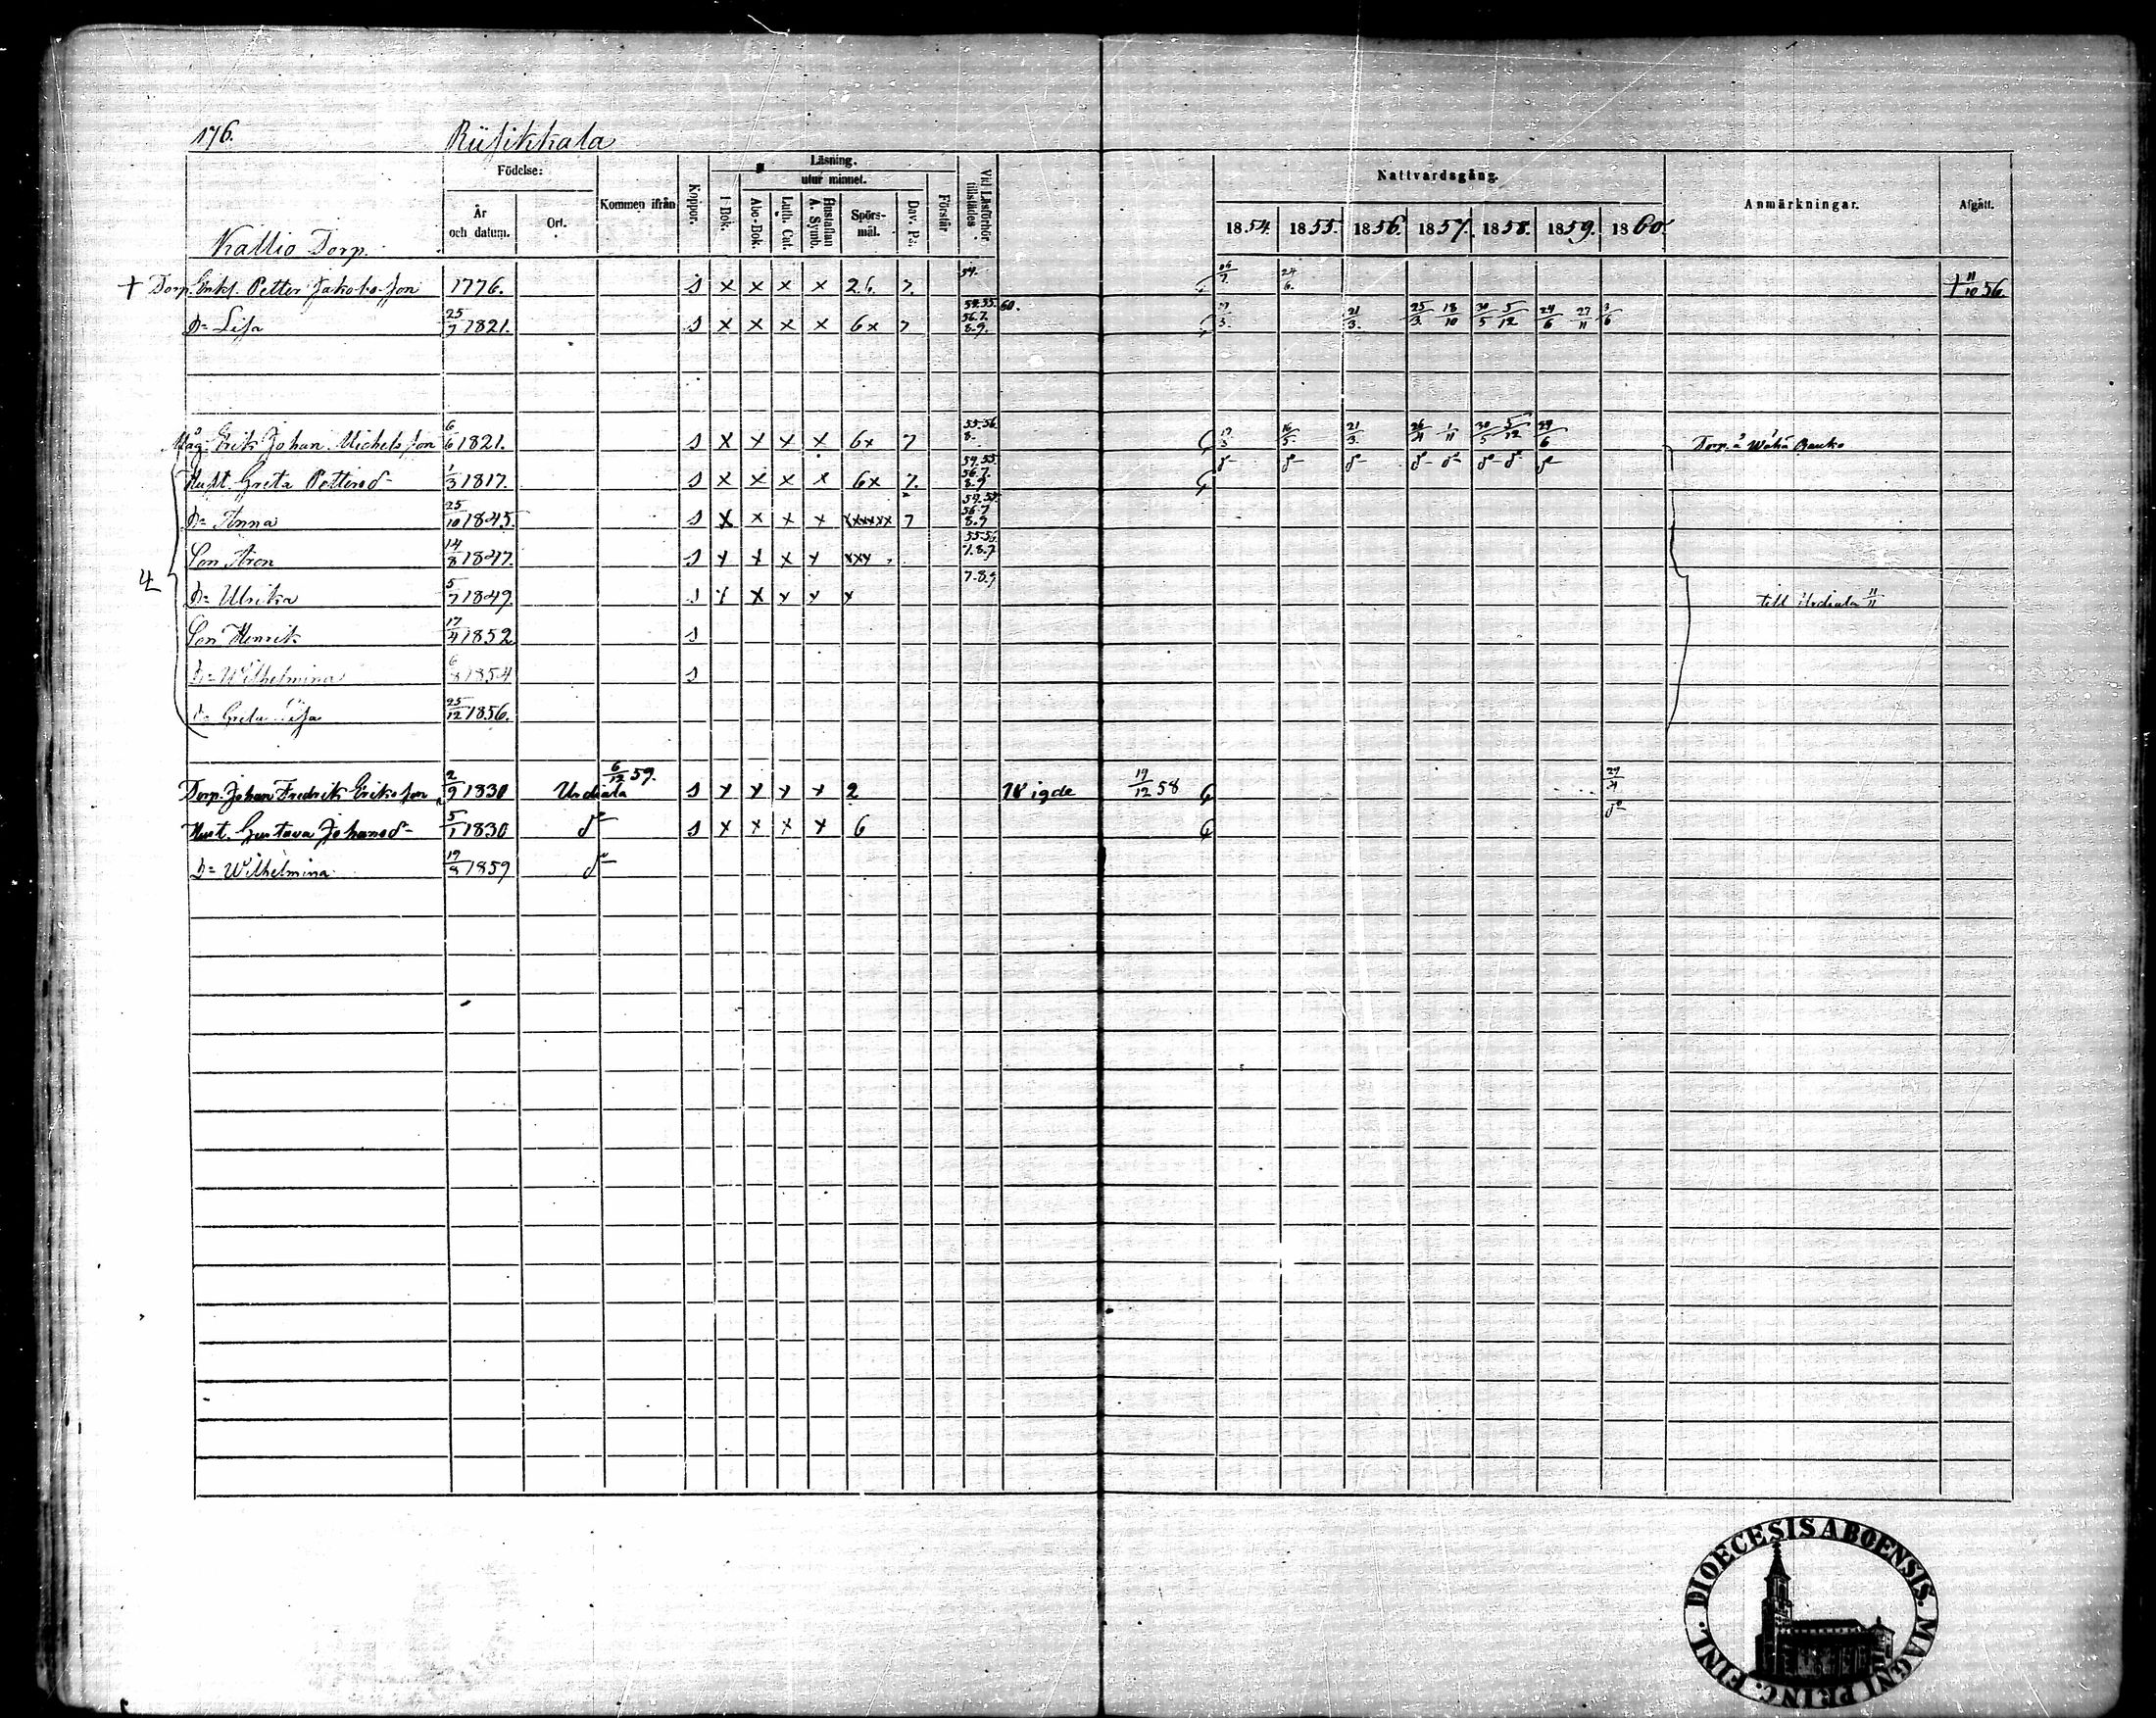 176. Riisikkala
Födelse: Läsning. Nattvardsgång.
utur minnet.
År och datum. Ort. Kommen ifrån Koppor. i Bok. Abc-Bok. Luth. Cat. Hustaflan A. Symb. Spörsmål. Dav. Ps. Förstår. Vid Läsförhör tillstädes 1854. 1855. 1856. 1857. 1858. 1859. 1860 Anmärkningar. Afgått.
Kallio Torp.
† Torp. Enkl. Petter Jakobsson 1776. s x x x x 26. 7. 54. 24/6. † 11/10 56.
D= Lisa 25/7 1821. s x x x x 6x 7 54.55. 56.7. 8.9. 60. 21/3. 25/3. 18/10 30/5 5/12 24/6 27/11 3/6
Måg. Erik Johan Michelsson 6/6 1821. s x x x x 6x 7 55.56. 8. 17/3 16/5. 21/3. 26/4 1/11 30/5 5/12 29/6 Torp. å Wähä Rauko
Hust. Greta Pettersd- 1/3 1817. s x x x x 6x 7. 54.55. 56.7. 8.9 d- d- d- d- d- d- d- d-
D= Anna 25/10 1845. s x x x x xxxxxx 7 56.7 8.9
Son Aron 14/8 1847. s x x x x xxx 55.56. 7.8.9
4
D= Ulrika 5/7 1849. s x x x x x 7.8.9 till Urdiala 11/11
Son Henrik 17/4 1852 s
D= Wilhelmina 6/8 1854 s
D= Greta Lisa 25/12 1856.
6/12 59.
Torp. Johan Fredrik Eriksson 2/9 1830 Urdiala s x x x x 2 Wigde 19/12 58 29/4
Hust. Gustava Johansd- 5/1 1830 d- s x x x x 6 d-
D= Wilhelmina 19/8 1859 d-
DIOECESIS ABOENSIS. MAGNI PRINC. FINL.